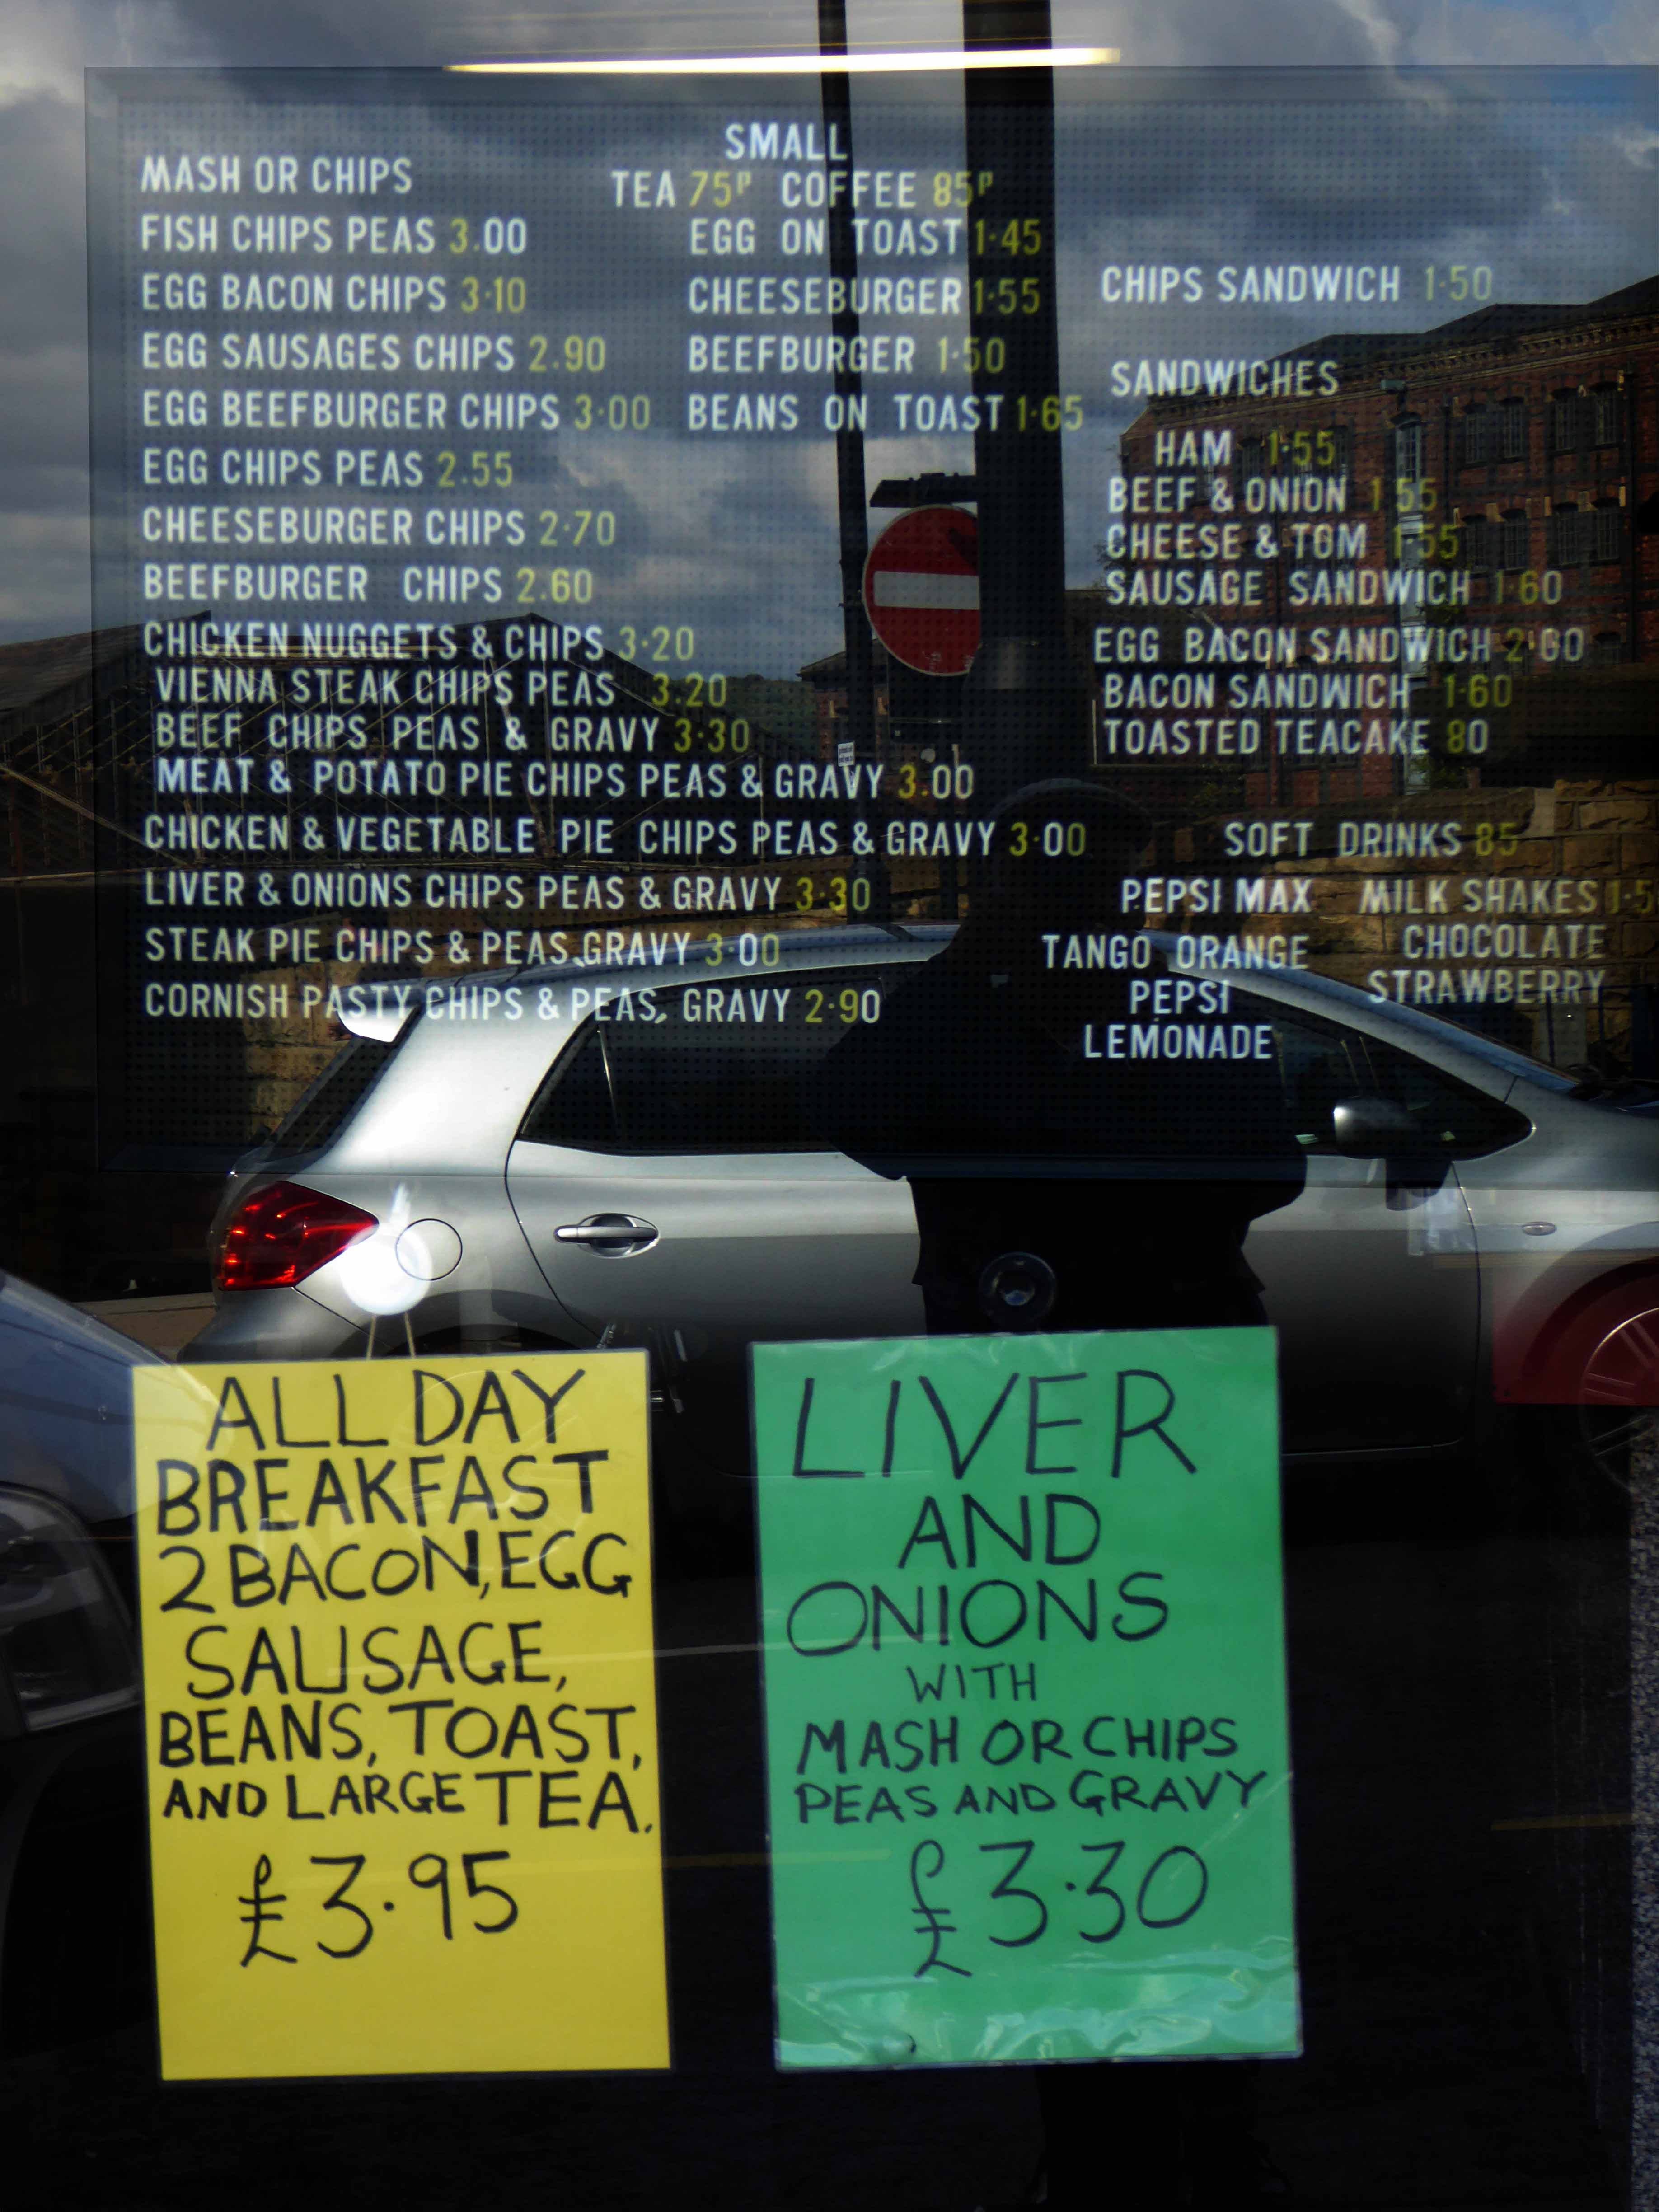 MASH OR CHIPS
FISH CHIPS PEAS 3.00
EGG BACON CHIPS 3·10
EGG SAUSAGES CHIPS 2.90
EGG BEEFBURGER CHIPS 3·00
EGG CHIPS PEAS 2.55
CHEESEBURGER CHIPS 2·70
BEEFBURGER CHIPS 2.60
CHICKEN NUGGETS & CHIPS 3·20
VIENNA STEAK CHIPS PEAS 3.20
BEEF CHIPS PEAS & GRAVY 3·30
MEAT & POTATO PIE CHIPS PEAS & GRAVY 3.00
CHICKEN & VEGETABLE PIE CHIPS PEAS & GRAVY 3·00
LIVER & ONIONS CHIPS PEAS & GRAVY 3·30
STEAK PIE CHIPS & PEAS, GRAVY 3·00
CORNISH PASTY CHIPS & PEAS, GRAVY 2·90
SMALL
TEA 75P COFFEE 85P
EGG ON TOAST 1·45
CHEESEBURGER 1·55
BEEFBURGER 1·50
BEANS ON TOAST 1·65
CHIPS SANDWICH 1·50
SANDWICHES
HAM 1·55
BEEF & ONION 1·55
CHEESE & TOM 1·55
SAUSAGE SANDWICH 1·60
EGG BACON SANDWICH
BACON SANDWICH 1·60
TOASTED TEACAKE 80
SOFT DRINKS 85
PEPSI MAX
TANGO ORANGE
PEPSI
LEMONADE
MILK SHAKES
CHOCOLATE
STRAWBERRY
ALL DAY
BREAKFAST
2 BACON, EGG
SAUSAGE,
BEANS, TOAST,
AND LARGE TEA.
£3·95
LIVER
AND
ONIONS
WITH
MASH OR CHIPS
PEAS AND GRAVY
£3·30